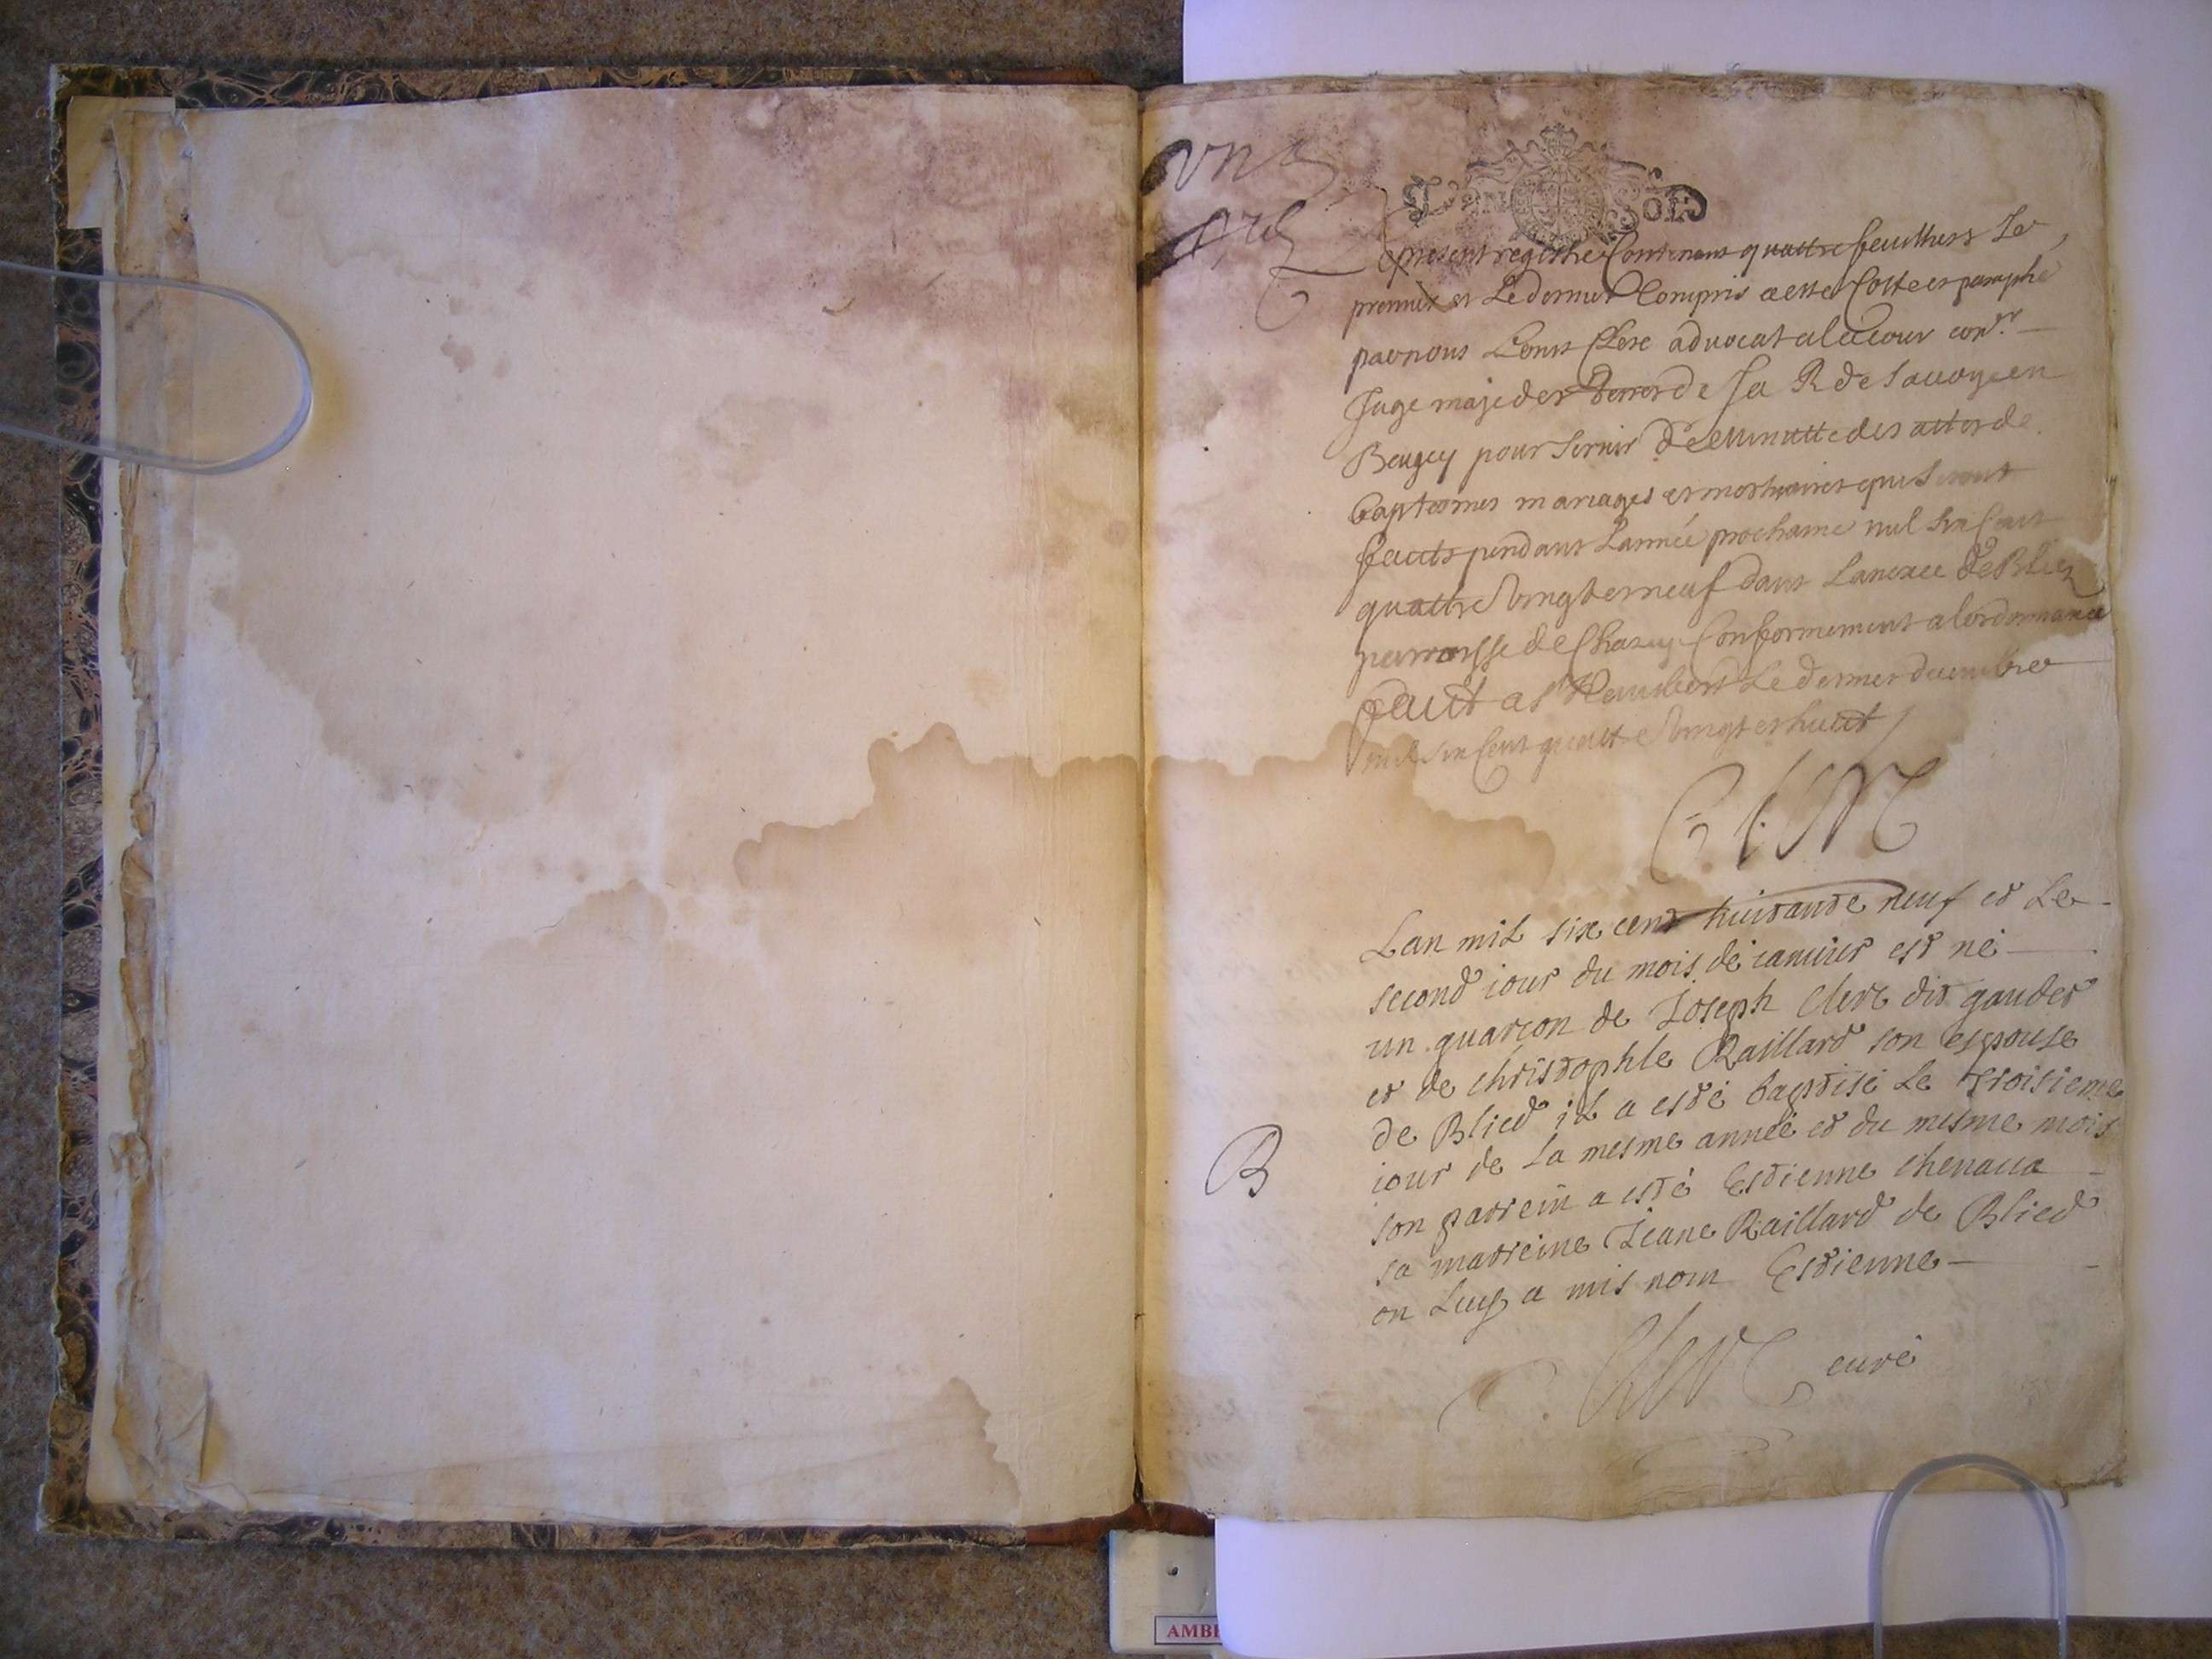 Le present registre Contenant quattre feuillers Le
premier et Le dernier Compris a esté Cotté et paraphé
par nous Louis Clerc advocat a la cour conr
Juge maje des terres de Sa R de Savoye en
Beugey pour servir de minutte des actes de
baptesmes mariages et mortuaires qui seront
faicts pendant L'année prochaine mil six Cent
quattre vingt et neuf dans L'anexe de Blies
parroisse de Chazey Conformement a l'ordonnance
faict a st Rambert Le dernier decembre
mil six Cent quattre vingt et huict
Clerc
Lan mil six cent huitante neuf et Le
second iour du mois de ianvier est né
un guarcon de Joseph Clerc dit gaudet
et de christophle Raillard son espouse
de Blied il a esté baptisé Le troisieme
B
iour de La mesme année et du mesme mois
son parrein a esté Estienne chenaua
sa marreine Jeane Raillard de Blied
on Luy a mis nom Estienne
Clerc curé
AMBE